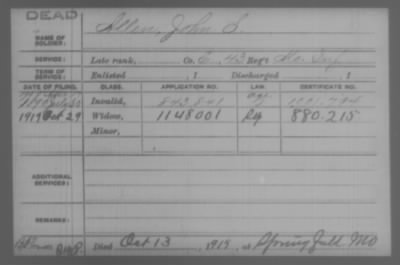 DEAD
NAME OF SOLDIER: Allen, John S.
SERVICE: Late rank, Co. E, 43 Reg't Mo. Inf.
TERM OF SERVICE: Enlisted , 1 Discharged , 1
DATE OF FILING. CLASS. APPLICATION NO. LAW. CERTIFICATE NO.
1890 July 30 Invalid, 843.841
1919 Oct 29 Widow, 1148001 880.215
Minor,
ADDITIONAL SERVICES:
REMARKS:
Died Oct 13, 1919, at Springfield Mo